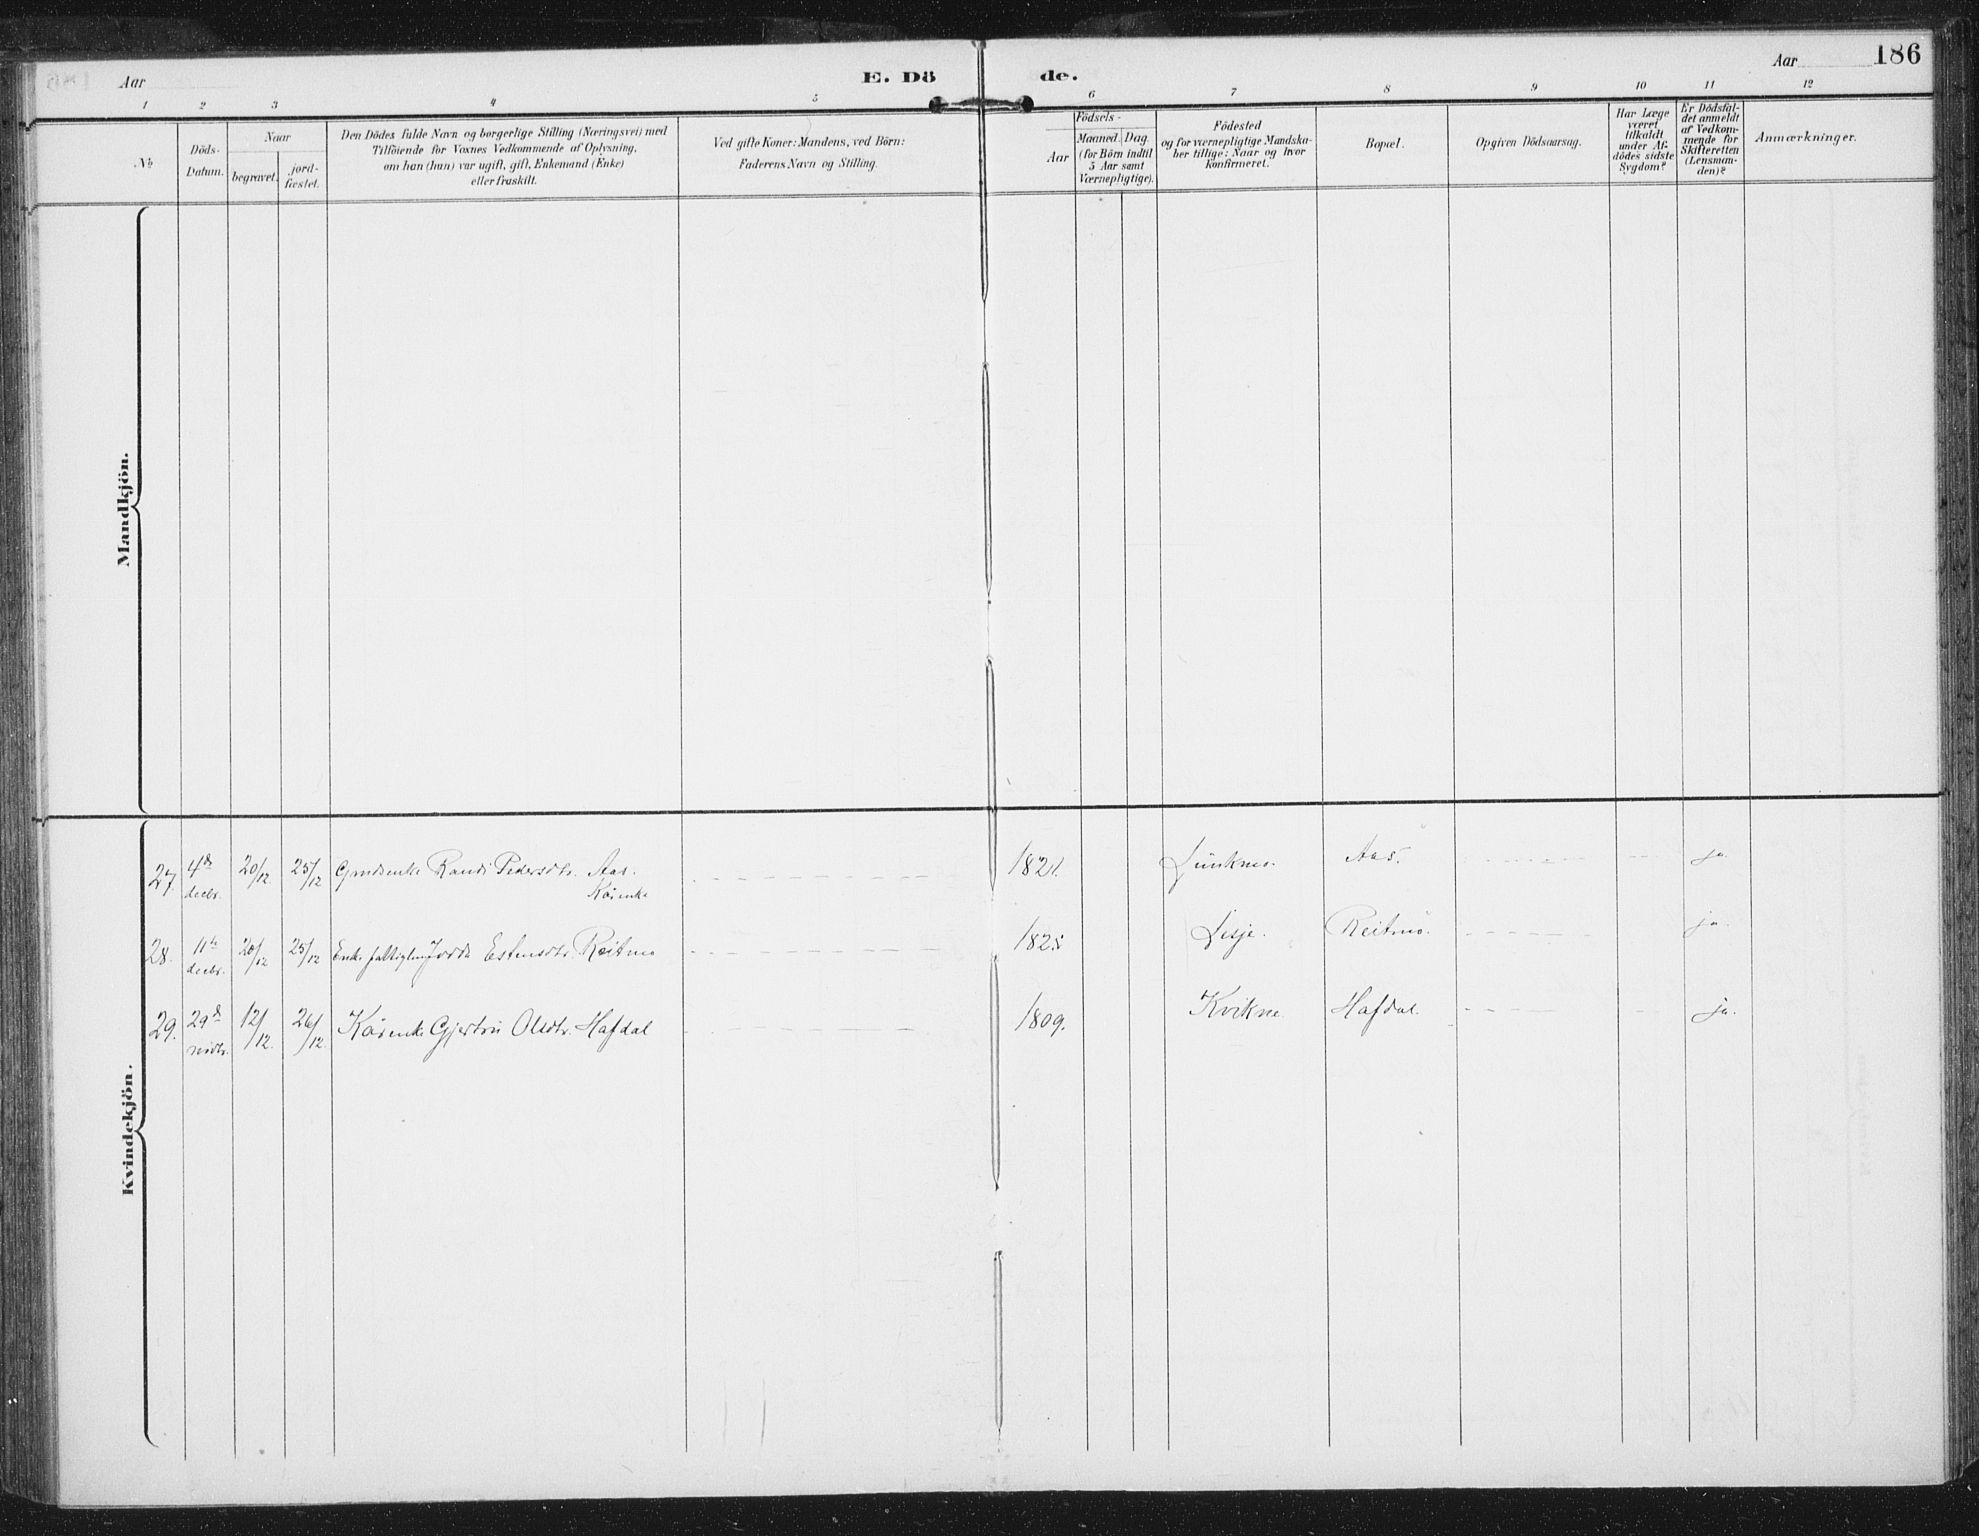 Aar
E. Dö
de.
Aar
186
1 2 3 4 5 6 7 8 9 10 11 12
No
Döds-
Datum.
Naar
begravet.
jord-
fæstet.
Den Dödes fulde Navn og borgerlige Stilling (Næringsvei) med
Tilföiende for Voxnes Vedkommende af Oplysning,
om han (hun) var ugift, gift, Enkemand (Enke)
eller fraskilt.
Ved gifte Koner: Mandens, ved Börn:
Faderens Navn og Stilling.
Födsels-
Aar
Maaned. Dag.
(for Börn indtil
5 Aar samt
Værnepligtige).
Födested
og for værnepligtige Mandska-
ber tillige: Naar og hvor
Konfirmeret.
Bopæl.
Opgiven Dödsaarsag.
Har Læge
været
tilkaldt
under Af-
dödes sidste
Sygdom?
Er Dödsfal-
det anmeldt
af Vedkom-
mende for
Skifteretten
(Lensman-
den)?
Anmærkninger.
Mandkjön.
Kvindekjön.
27. 4de decbr. 20/12. 25/12 Randi Pedersdtr. Aas. 1821. Aas. ja.
Kårenke
28. 11te decbr. 20/12 25/12 Enke Estensdtr. Reitmo 1825 Lisje. Reitmo. ja.
29. 29de novbr. 12/12. 26/12. Kårenke Gjertru Olsdtr. Hafdal 1809. Kvikne Hafdal. ja.